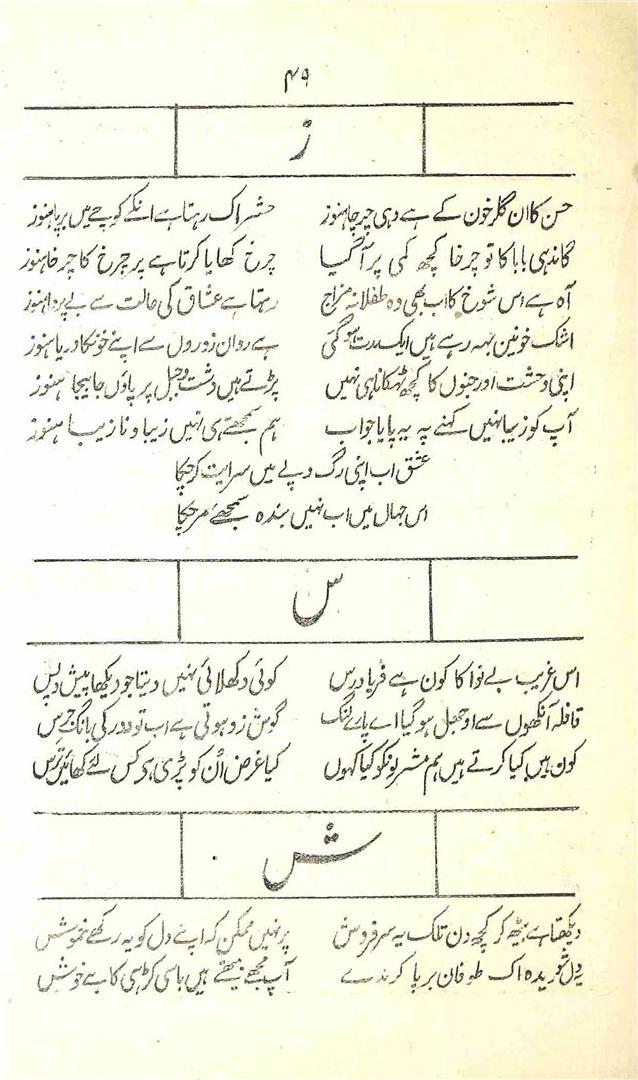 ۴۹
ز
حسن کا ان گلرخون کے ہے وہی چرچا ہنوز حشر اک رہتا ہے انکے کوچے میں برپا ہنوز
گاندہی بابا کا تو چرخا کچھ کمی پر آ گیا چرخ کھایا کرتا ہے پر چرخ کا چرخا ہنوز
آہ ہے اس شوخ کا اب بھی وہ طفلانہ مزاج رہتا ہے عشاق کی حالت سے بے پروا ہنوز
اشک خونین بہہ رہے ہیں ایک مدت ہو گئی ہے روان زوروں سے اپنے خونکا دریا ہنوز
اپنی وحشت اور جنوں کا کچھ ٹہکانا ہی نہیں پڑتے ہیں دشت و جبل پر پاؤں جا بیجا ہنوز
آپ کو زیبا نہیں کہنے پہ یہ پایا جواب ہم سمجھتے ہی نہیں زیبا و نازیبا ہنوز
عشق اب اپنی رگ و پے میں سرایت کر چکا
اس جہاں میں اب نہیں بندہ سمجھئے مر چکا
س
اس غریب بے نوا کا کون ہے فریاد رس کوئی دکھلائی نہیں دیتا جو دیکھا پیش و پس
قافلہ آنکھوں سے اوجھل ہو گیا اے پائے لنگ گوش زد ہوتی ہے اب تو دور کی بانگ جرس
کون ہیں کیا کرتے ہیں ہم مشربونکو کیا کہوں کیا غرض اُن کو پڑی ہی کس لئے کھائیں ترس
ش
دیکھتا ہے بیٹھ کر کچھ دن تلک یہ سرفروش پر نہیں ممکن کہ اپنے دل کو یہ رکھے خموش
یہ دل شوریدہ اک طوفان برپا کر نہ دے آپ مجھے بیٹھے ہیں باسی کڑہی کا ہے خوش